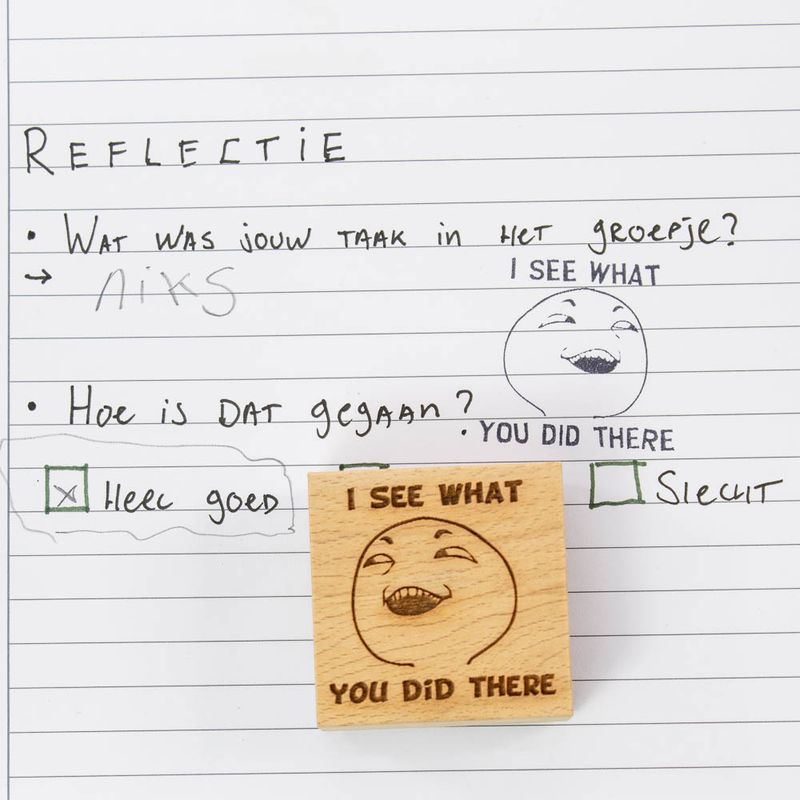 REFLECTIE
• WAT WAS JOUW TAAK in HET GROEPJE?
→ niks
I SEE WHAT
YOU DID THERE
• Hoe is DAT gegaan?
☒ Heel goed
☐ Slecht
I SEE WHAT
YOU DiD THERE